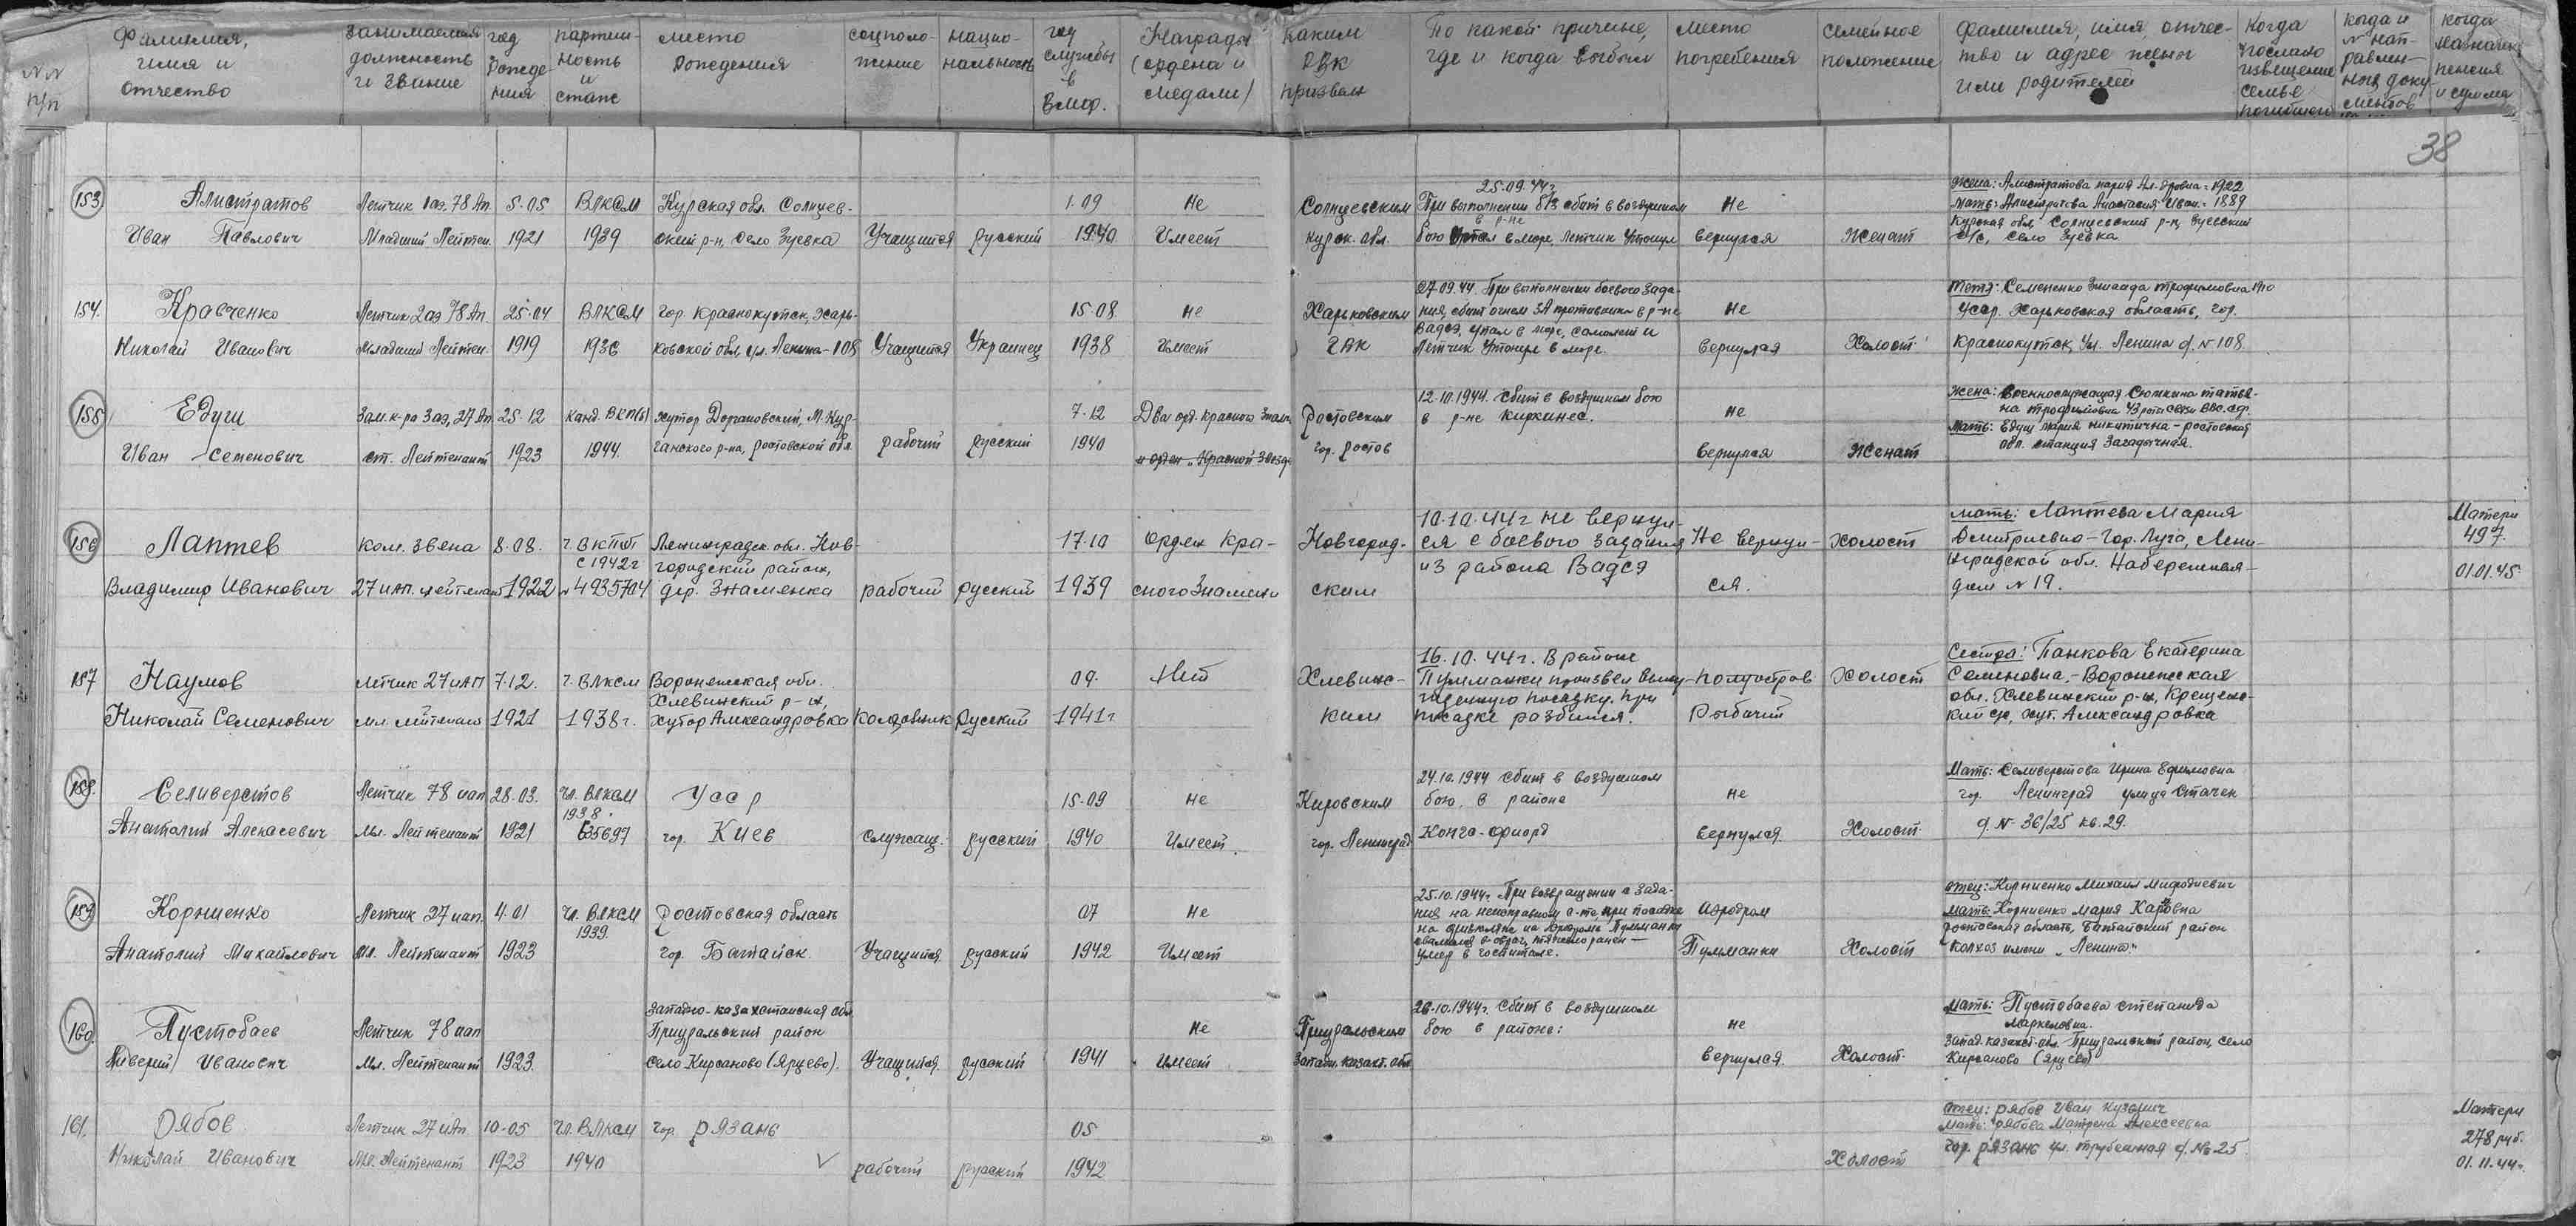 NN п/п
Фамилия, имя и отчество
Занимаемая должность и звание
год рождения
партийность и стаж
место рождения
соцположение
национальность
год службы в ВМФ.
Награды (ордена и медали)
Каким РВК призван
По какой причине, где и когда выбыл
Место погребения
Семейное положение
Фамилия, имя, отчество и адрес жены или родителей
Когда послано извещение семье погибшего
когда и N направленных документов
когда назначена пенсия и сумма
38
153
Алистратов
Иван Павлович
Летчик 1 аэ. 78 Ап
Младший Лейтен.
5.05
1921
ВЛКСМ
1939
Курская обл. Солнцев-
ский р-н, село Зуевка
Учащийся
русский
1.09
1940
Не
Имеет
Солнцевским
Курск. обл.
25.09.44г
При выполнении б/з сбит в воздушном
бою в р-не
в море, летчик утонул
Не
вернулся
Женат
Жена: Алистратова Мария Ал-дровна - 1922
Мать: Алистратова Анастасия Иван. - 1889
Курская обл, Солнцевский р-н, Зуевский
с/с, село Зуевка
154.
Кравченко
Николай Иванович
Летчик 2 аэ 78 Ап
Младший Лейтен.
25.04
1919
ВЛКСМ
1936
гор. Краснокутск, Харь-
ковской обл. ул. Ленина - 108
Учащийся
Украинец
15.08
1938
Не
Имеет
Харьковским
ГВК
27.09.44. При выполнении боевого зада-
ния, сбит огнем ЗА противника в р-не
Вадсэ, упал в море, самолет и
летчик утонул в море.
Не
вернулся
Холост
Тетя: Семененко Зинаида Трофимовна 1910
Усср. Харьковская область, гор.
Краснокутск, ул. Ленина д. N 108
155
Едуш
Иван Семенович
Зам. к-ра 3 аэ, 27 Ап
ст. Лейтенант
25.12
1923
Канд. ВКП(б)
1944.
хутор Дорановский, М. Кур-
ганского р-на, Ростовской обл.
рабочий
русский
7.12
1940
Два орд. Красного Знам.
и орден "Красной Звезд.
Ростовским
гор. Ростов
12.10.1944. Сбит в воздушном бою
в р-не Киркинес.
Не
Вернулся
Женат
Жена: Военнослужащая Сюткина Татья-
на Трофимовна рота связи ВВС. СФ.
Мать: Едуш Мария Никитична - Ростовская
обл. станция Загадочная.
156
Лаптев
Владимир Иванович
Ком. звена
27 ИАП. лейтенант
8.08.
1922
с 1942г
N 4935704
Ленинградск. обл. Нов-
городский район,
дер. Знаменка
рабочий
русский
17.10
1939
Орден Кра-
сного Знамени
Новгород-
ским
10.10.44г не вернул-
ся с боевого задания
из района Вадсэ
Не вернул-
ся.
холост
Мать: Лаптева Мария
Дмитриевна - гор. Луга, Лени-
нградской обл. Набережная -
дом N 19.
Матери
497.
01.01.45.
157
Наумов
Николай Семенович
летчик 27 ИАП
мл. лейтенант
7.12.
1921
ч. ВЛКСМ
1938г.
Воронежская обл.
Хлевинский р-н,
хутор Александровка
колхозник
русский
09.
1941г
Нет
Хлевинс-
ким
16.10.44г. В районе
Пумманки произвел выну-
жденную посадку. При
посадке разбился.
Полуостров
Рыбачий
Холост
Сестра: Панкова Екатерина
Семеновна, - Воронежская
обл. Хлевинский р-н, Крещенс-
кий с/с, хут. Александровка
158.
Селиверстов
Анатолий Алексеевич
Летчик 78 иап
Мл. Лейтенант
28.03.
1921
Чл. ВЛКСМ
1938.
635697
Усср
гор. Киев
служащ.
русский
15.09
1940
Не
Имеет.
Кировским
гор. Ленинград
24.10.1944 Сбит в воздушном
бою, в районе
Конгс-фиорд
Не
вернулся.
Холост.
Мать: Селиверстова Ирина Ефимовна
гор. Ленинград улица Стачек
д. N 36/25 кв. 29.
159
Корниенко
Анатолий Михайлович
Летчик 27 иап.
Мл. Лейтенант
4.01
1923
Чл. ВЛКСМ
1939.
Ростовская область
гор. Батайск.
Учащийся
русский
07
1942
Не
Имеет
25.10.1944г. При возвращении с зада-
ния на неисправном с-те, при посадке
на аэродром Пумманки
свалился в овраг, тяжело ранен -
умер в госпитале.
Аэродром
Пумманки
Холост
Отец: Корниенко Михаил Мифодиевич
Мать: Корниенко Мария Карповна
Ростовская область, Батайский район
колхоз имени "Ленина"
160.
Пустобаев
Ливерий Иванович
Летчик 78 иап
Мл. Лейтенант
1923.
Западно-Казахстанская обл.
Приуральский район
село Кирсаново (Ярцево).
Учащийся
русский
1941
Не
имеет
Приуральским
Западн. Казахст. обл
26.10.1944г. Сбит в воздушном
бою в районе:
Не
вернулся
Холост.
Мать: Пустобаева Степанида
Маркеловна.
Запад. Казахст. обл. Приуральский район, село
Кирсаново (Ярцево)
161.
Рябов
Николай Иванович
Летчик 27 иАп
Мл. Лейтенант
10.05
1923
Чл. ВЛКСМ
1940
гор. Рязань
рабочий
русский
05
1942
Холост
Отец: Рябов Иван Кузьмич
Мать: Рябова Матрена Алексеевна
гор. Рязань ул. Трубежная д. № 25.
Матери
278 руб.
01.11.44г.